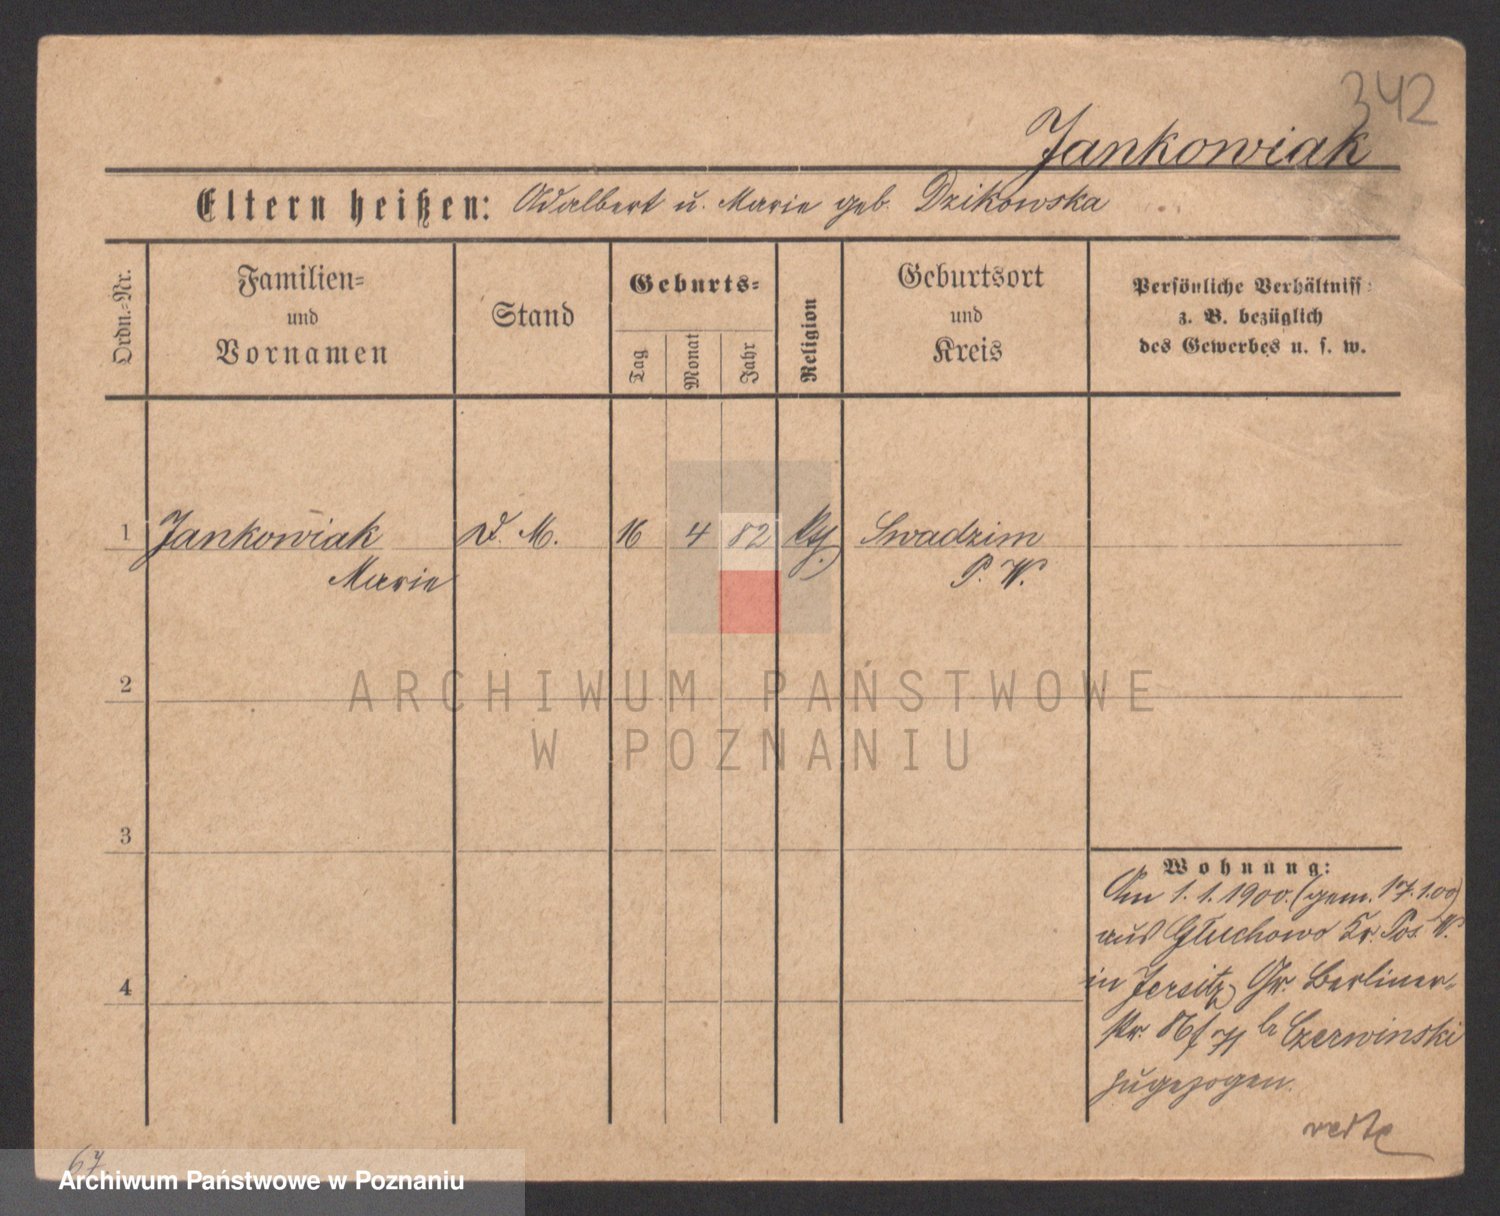 342
Jankowiak
Eltern heißen: Adalbert u. Marie geb. Dzikowska
Ordn.=Nr.
Familien=
und
Vornamen
Stand
Geburts=
Tag
Monat
Jahr
Religion
Geburtsort
und
Kreis
Persönliche Verhältniss
z. B. bezüglich
des Gewerbes u. s. w.
1 Jankowiak D. M. 16 4 82 kth Swadzim
Marie P. W.
2
ARCHIWUM PAŃSTWOWE
W POZNANIU
3
4
Wohnung:
Am 1.1.1900. (gem. 17.1.00)
aus Gluchowo Kr. Pos. W.
in Jersitz, Gr. Berliner-
str. b. Czerwinski
zugezogen.
67
Archiwum Państwowe w Poznaniu